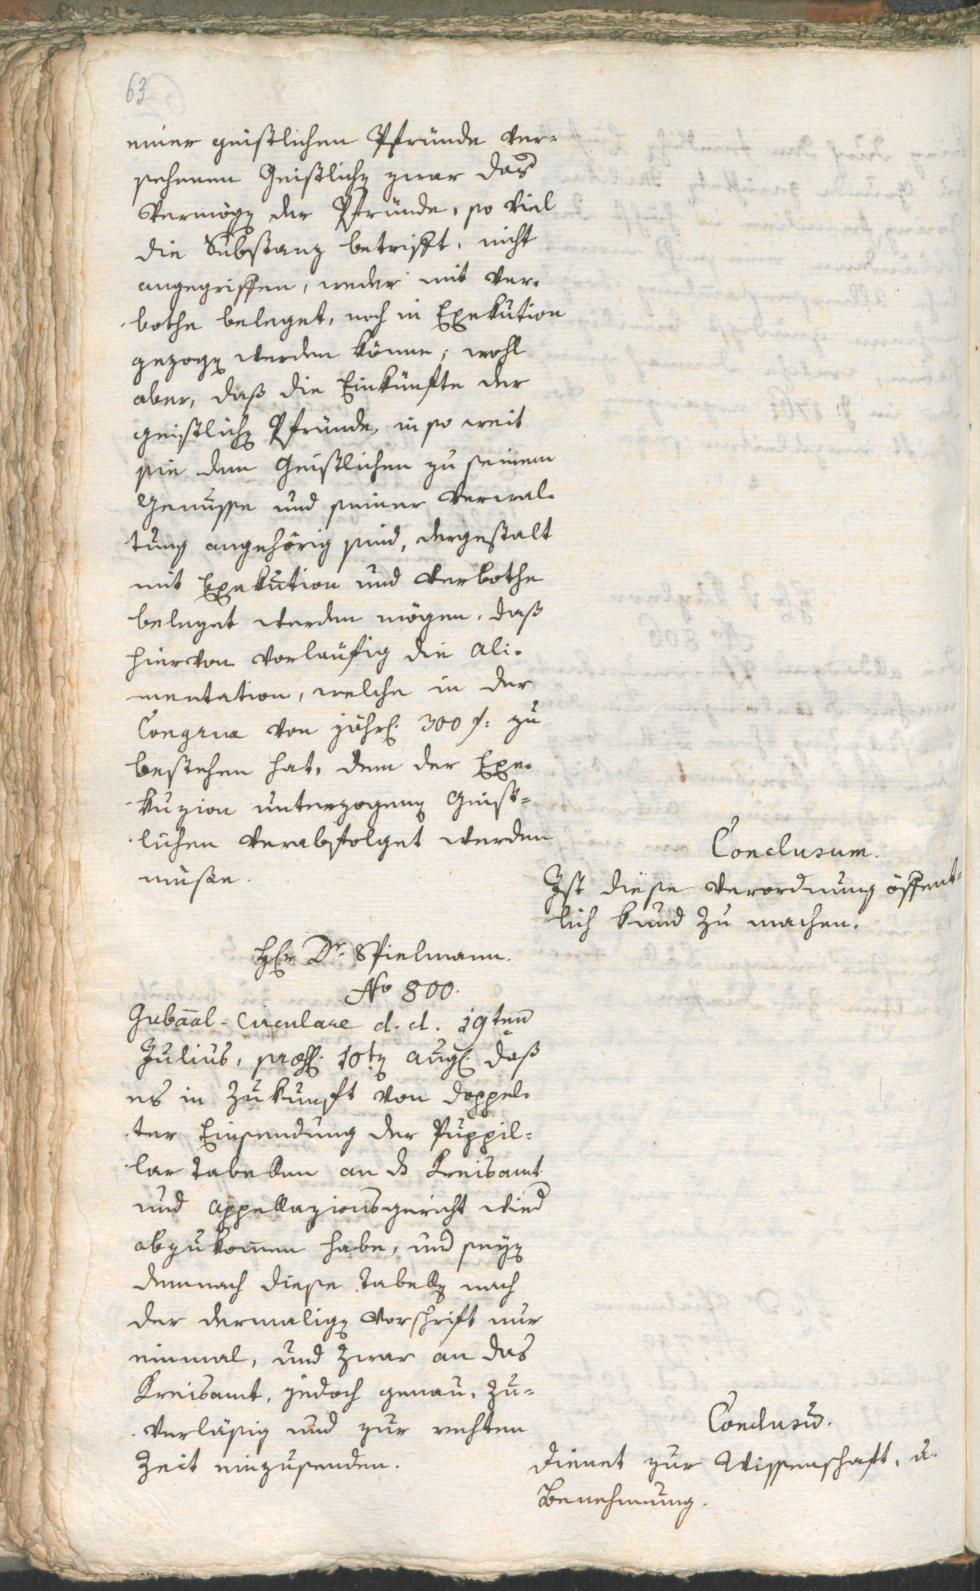 63
einer geistlichen Pfründe ver-
sehenen Geistlichen zwar das
Vermögen der Pfründe, so viel
die Substanz betrifft, nicht
angegriffen, weder mit Ver-
bothe beleget, noch in Exekution
gezogen werden könne; wohl
aber, daß die Einkünfte der
geistlichen Pfründe, in so weit
sie dem Geistlichen zu seinem
Genusse und seiner Verwal-
tung angehörig sind, dergestalt
mit Exekution und Verbothe
beleget werden mögen, daß
hiervon vorläufig die Ali-
mentation, welche in der
Congrua von jährl. 300 f: zu
bestehen hat, dem der Exe-
kuzion unterzogenen Geist-
lichen verabfolget werden
müße.
Conclusum.
Ist dieße Verordnung öffent-
lich kund zu machen.
H Dr. Spielmann.
No 800.
Gubaal-Circulare d. d. 19ten
Julius, präs. 10ten Aug. daß
es in Zukunft von doppel-
ter Einsendung der Puppil-
lar Tabellen an das Kreisamt
und Appellazionsgericht wied
abzukomen habe, und seyen
demnach diese Tabellen nach
der dermaligen Vorschrift nur
einmal, und zwar an das
Kreisamt, jedoch genau, zu-
verläßig und zur rechten
Zeit einzusenden.
Conclusu.
Dienet zur Wissenschaft, u.
Benehmung.